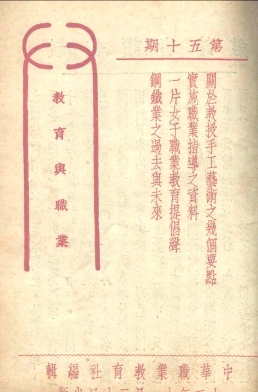 第五十期
關於教授手工藝術之幾個要點
實施職業指導之資料
一片女子職業教育提倡聲
鋼鐵業之過去與未來
教育與職業
中華職業教育社編輯